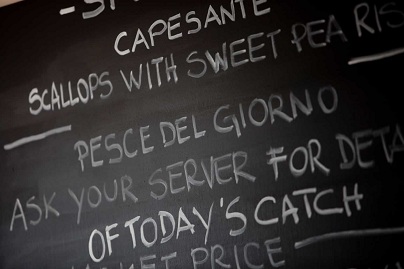 CAPESANTE
SCALLOPS WITH SWEET PEA RIS
PESCE DEL GIORNO
ASK YOUR SERVER FOR DETA
OF TODAY'S CATCH
MARKET PRICE